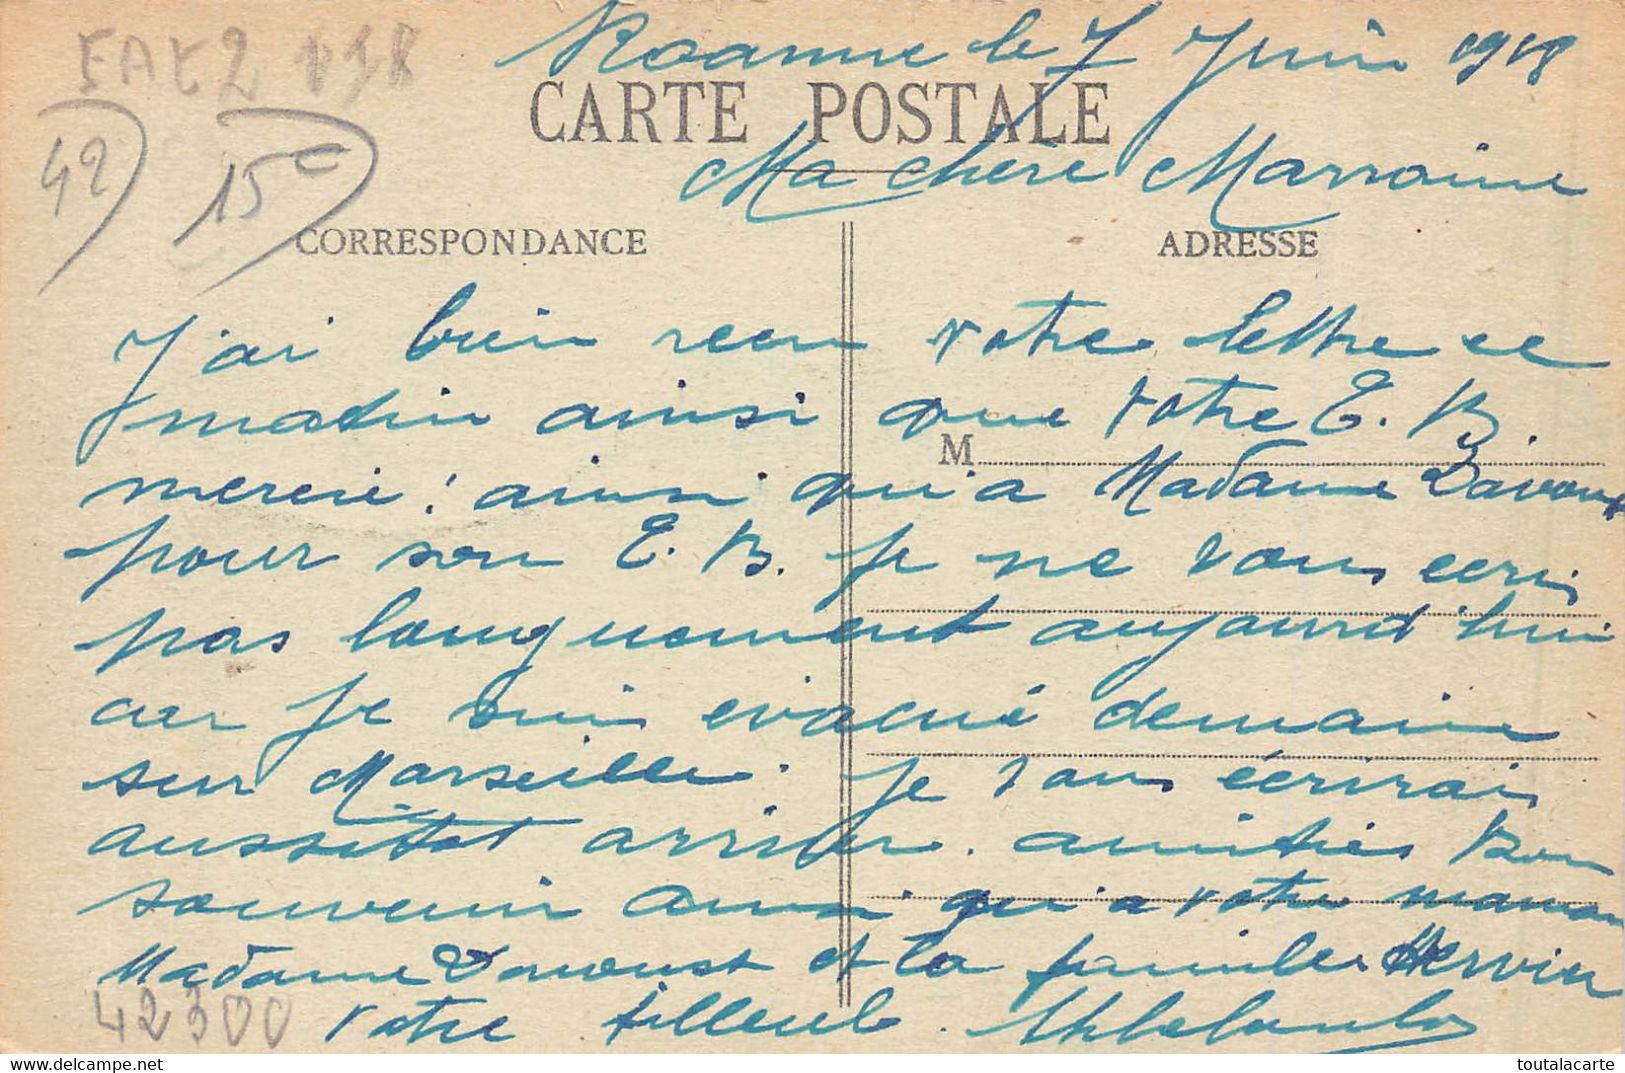 Roanne le 7 Juin 1918
CARTE POSTALE
Ma chère Marraine
42
15c
CORRESPONDANCE
ADRESSE
J'ai bien recu votre lettre ce
matin ainsi que votre E. B.
M
mercie! ainsi qu'a Madame Davoust
pour son E. B. Je ne vous ecris
pas longuement aujourd'hui
car je suis evacué demain
sur Marseille. Je vous écrirais
aussitot arriver. amitiés Bon
souvenir ainsi qu'a votre maman
Madame Davoust et la famille Hervier
42300
votre filleul.
toutalacarte